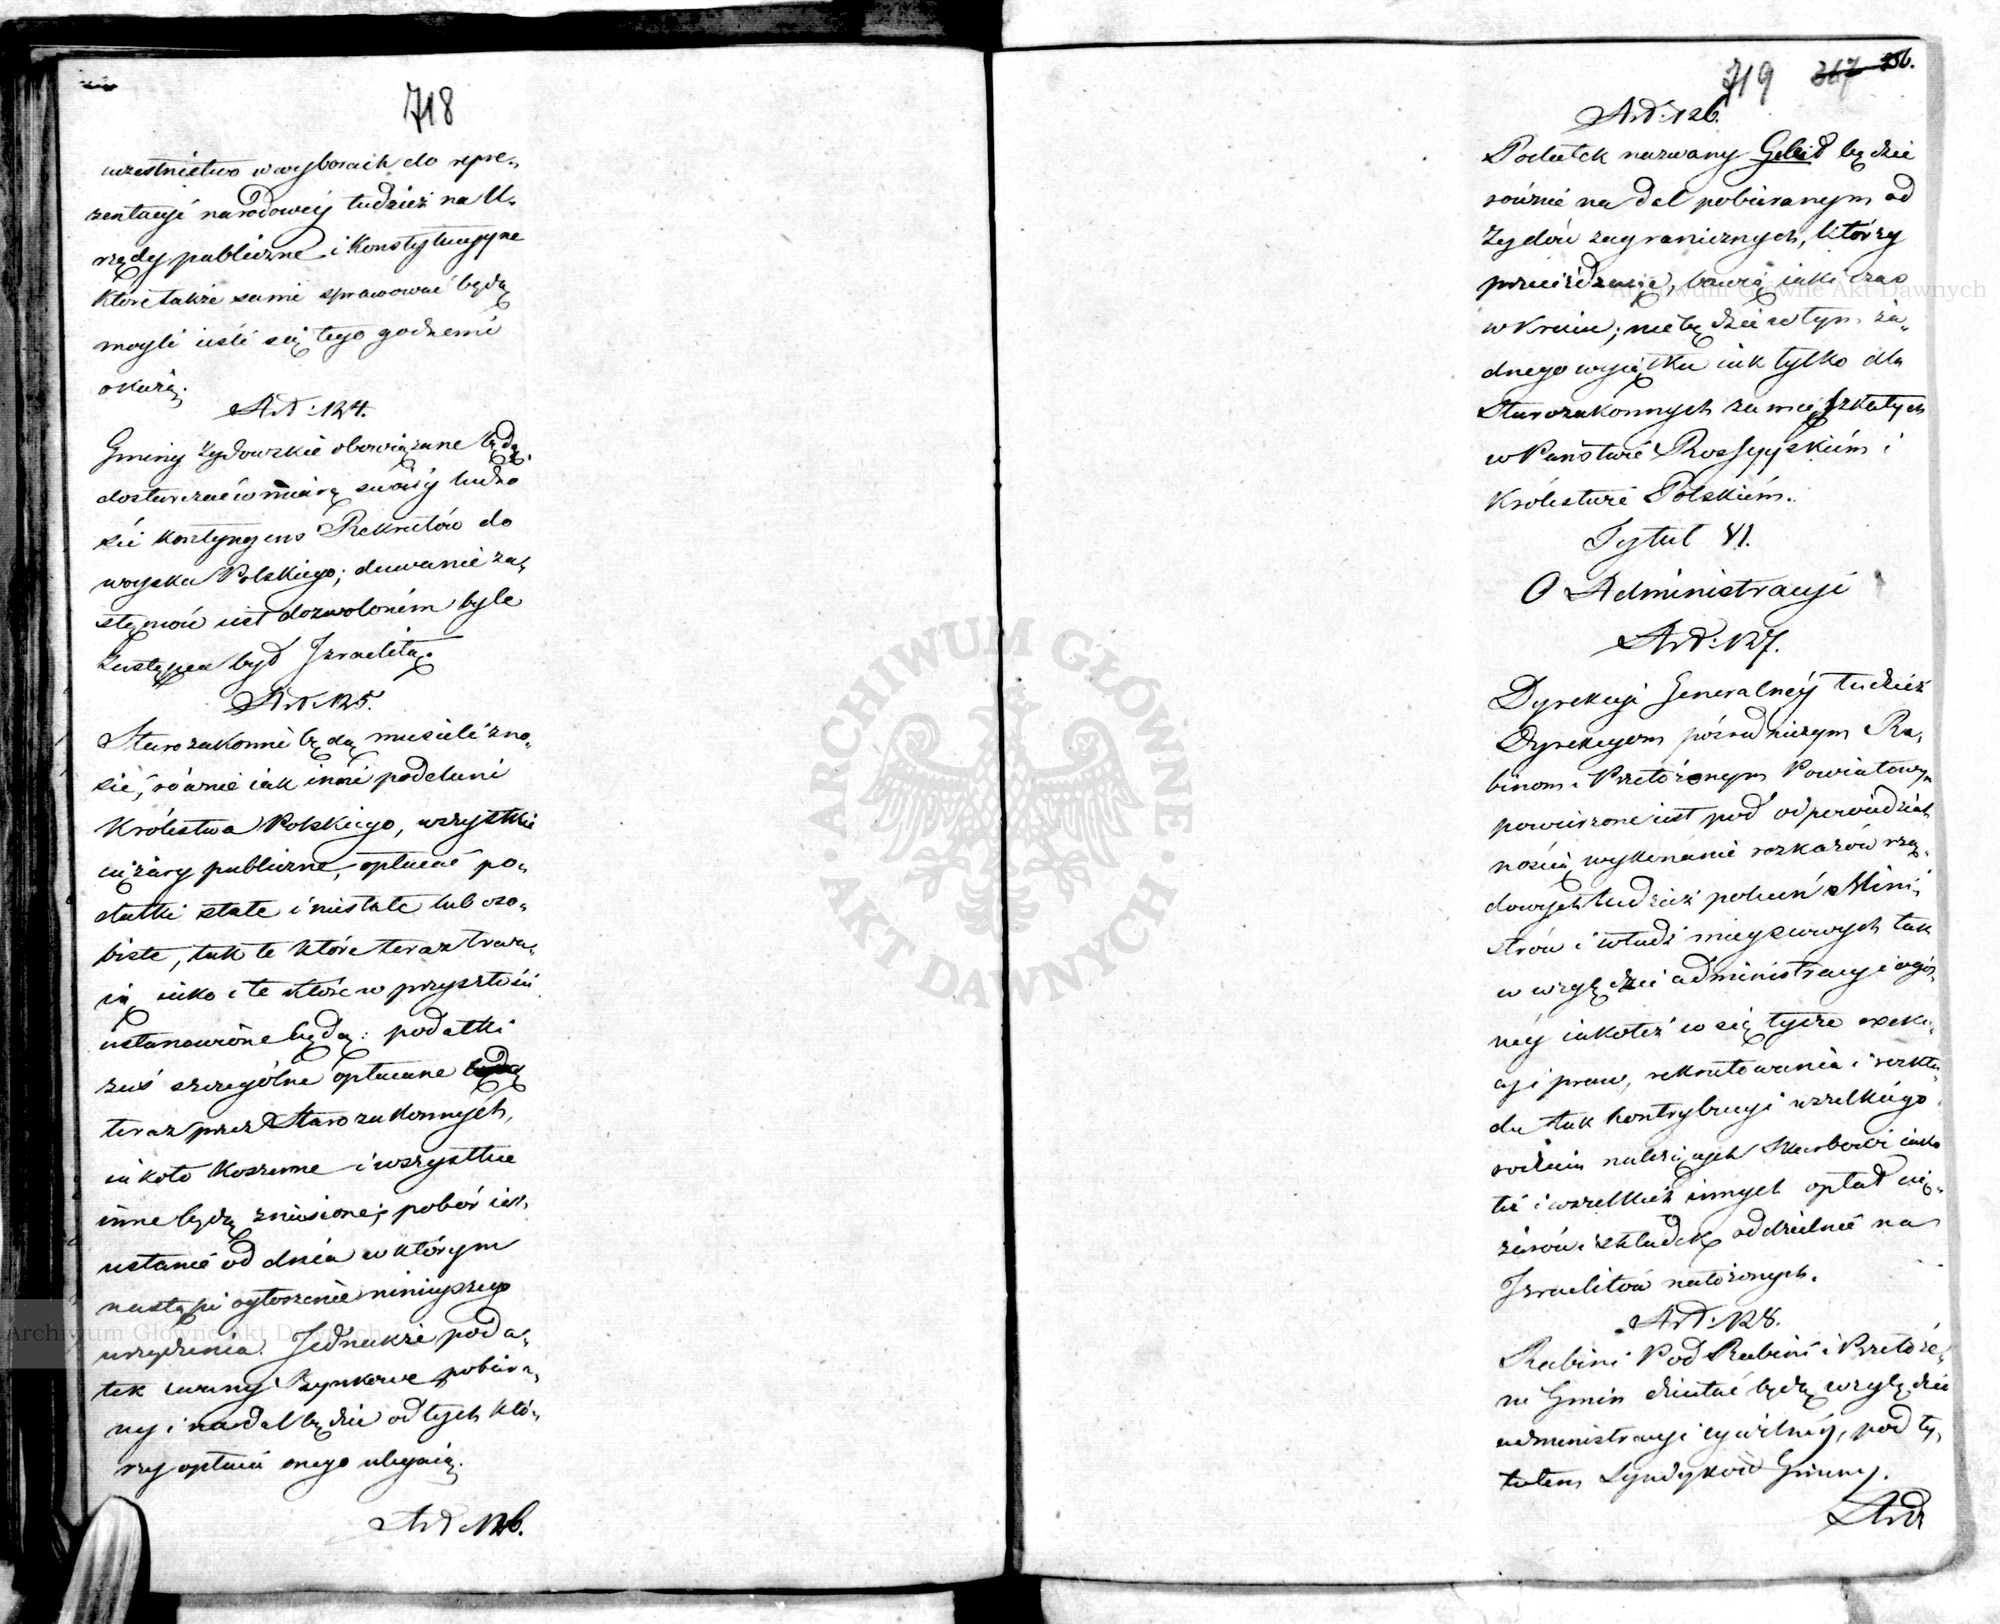 718
uczestnictwo w wyborach do repre-
zentacyi narodowéy tudzież na U-
rzędy publiczne i Konstytucyyne
które także sami sprawować będą
mogli ieśli się tego godnemi
okażą.
Art: 124.
Gminy Żydowskie obowiązane będą
dostarczać w miarę swoiéy ludno
ści kontyngens Rekrutów do
woyska Polskiego; dawanie za-
stępców iest dozwoloném byle
Zastępca był Izraelitą.
Art: 125.
Starozakonni będą musieli zno-
sić, równie iak inni poddani
Królestwa Polskiego, wszystkie
ciężary publiczne, opłacać po-
datki stałe i niestałe lub oso-
biste, tak te które teraz trwa-
ią iako i te które w przyszłości
ustanowione będą: podatki
zaś szczególne opłacane będą
teraz przez Starozakonnych,
iako to Koszerne i wszystkie
inne będą zniesione; pobór ich
ustanie od dnia w którym
nastąpi ogłoszenie ninieyszego
urządzenia. Jednakże poda-
tek zwany Rynkowe pobiera-
ny i nadal będzie od tych któ-
rzy opłacie onego ulegaią.
Art: 126.
719 317 356.
Art: 126.
Podatek nazwany Geleit będzie
równie na dal pobieranym od
Żydów zagranicznych, którzy
przeieżdzaią, bawią iaki czas
w Kraiu; nie będzie w tym ża-
dnego wyiątku iak tylko dla
Starozakonnych zamieszkałych
w Państwie Rossyyskiém i
Królestwie Polskiém.
Tytuł VI.
O Administracyi
Art: 127.
Dyrekcyi Generalnéy tudzież
Dyrekcyom pośredniczym Ra-
binom i Przełożonym Powiatowym
powierzone iest pod odpowiedzial-
nością wykonanie rozkazów rzą-
dowych tudzież poleceń Mini-
strów i władz mieyscowych tak
w względzie administracyi ogól-
néy iakoteż co się tycze exeku-
cyi praw, rekrutowania i rozkła-
du tak kontrybucyi wszelkiego
rodzaiu należących Skarbowi iako
téż i wszelkich innych opłat cię-
żarów i składek oddzielnie na
Izraelitów nałożonych.
Art: 128.
Rabini Pod Rabini i Przełoże-
ni Gmin działać będą względzie
administracyi cywilnéy, pod ty-
tułem Syndyków Gminy.
Art:
ARCHIWUM GŁÓWNE AKT DAWNYCH
Archiwum Główne Akt Dawnych
Archiwum Główne Akt Dawnych